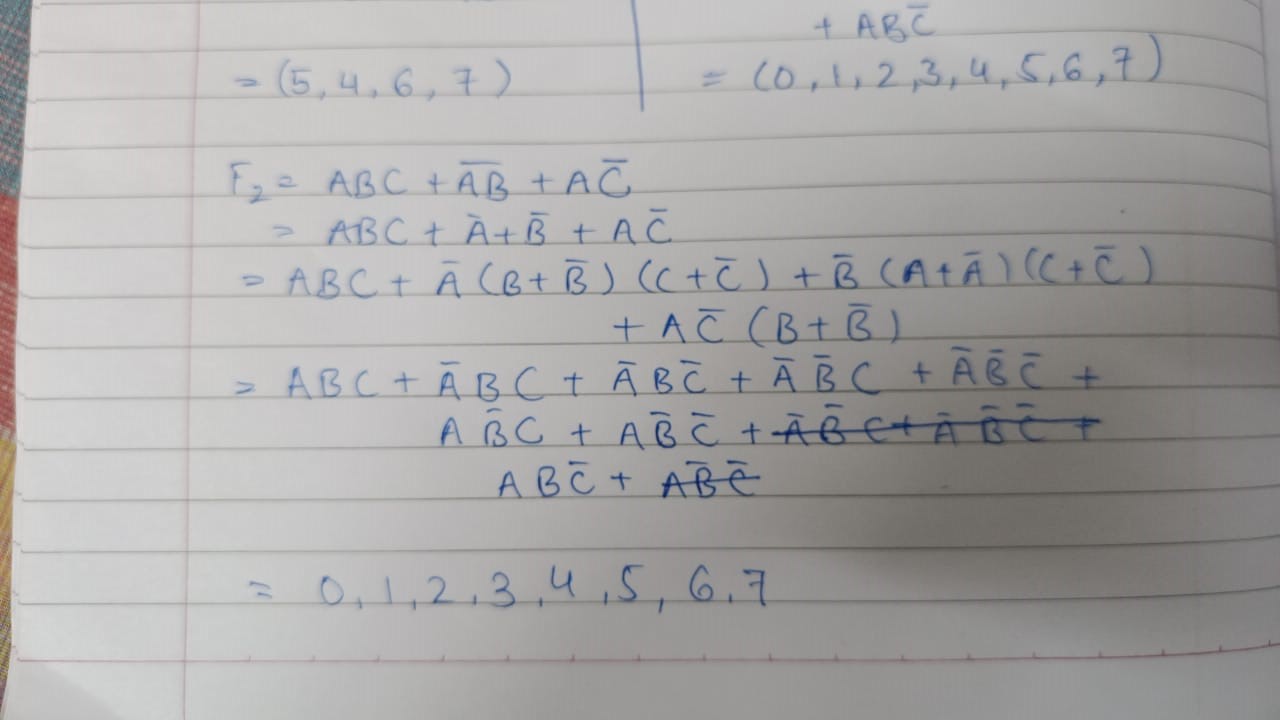 + ABC̅
= (5, 4, 6, 7)
= (0, 1, 2, 3, 4, 5, 6, 7)
F₂ = ABC + A̅B̅ + AC̅
= ABC + A̅ + B̅ + AC̅
= ABC + A̅ (B + B̅) (C + C̅) + B̅ (A + A̅) (C + C̅)
+ AC̅ (B + B̅)
= ABC + A̅BC + A̅BC̅ + A̅B̅C + A̅B̅C̅ +
AB̅C + AB̅C̅ + A̅B̅C + A̅B̅C̅ +
ABC̅ + AB̅C̅
= 0, 1, 2, 3, 4, 5, 6, 7